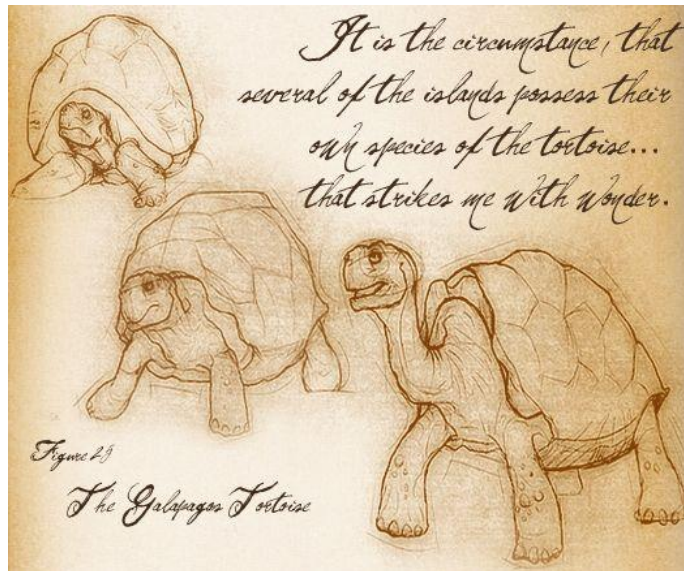 It is the circumstance, that
several of the islands possess their
own species of the tortoise...
that strikes me with wonder.
Figure 23
The Galapagos Tortoise